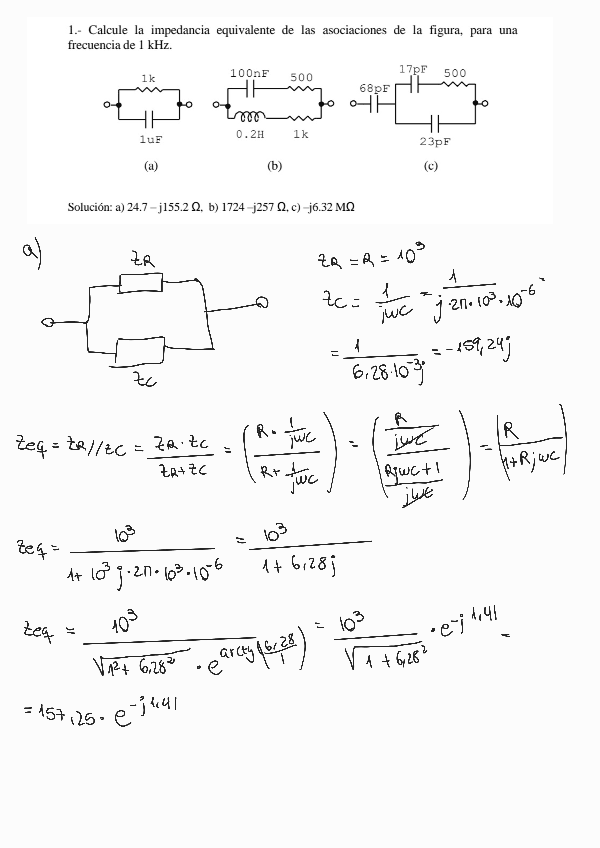 1.- Calcule la impedancia equivalente de las asociaciones de la figura, para una
frecuencia de 1 kHz.
1k
1uF
(a)
100nF 500
0.2H 1k
(b)
17pF 500
68pF
23pF
(c)
Solución: a) 24.7 – j155.2 Ω, b) 1724 –j257 Ω, c) –j6.32 MΩ
a)
ZR
ZC
ZR = R = 10³
ZC = 1/(jωC) = 1/(j·2π·10³·10⁻⁶)
= 1/(6,28·10⁻³j) = -159,24j
Zeq = ZR//ZC = (ZR·ZC)/(ZR+ZC) = ((R·1/(jωC))/(R+1/(jωC))) = ((R/(jωC))/((Rjωc+1)/(jωc))) = |R/(1+RjωC)|
Zeq = 10³/(1+10³j·2π·10³·10⁻⁶) = 10³/(1+6,28j)
Zeq = 10³/(√(1²+6,28²)·e^arctg(6,28/1)) = 10³/√(1+6,28²)·e^-j1,41 =
= 157,25·e^-j1,41